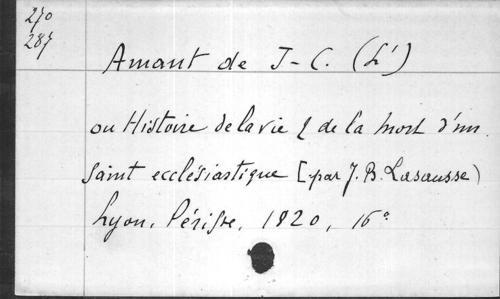 270
287
Amant de J-C. (L')
ou Histoire de la vie & de la mort d'un
saint ecclésiastique [par J. B. Lasausse)
Lyon, Périsse, 1820, 16°